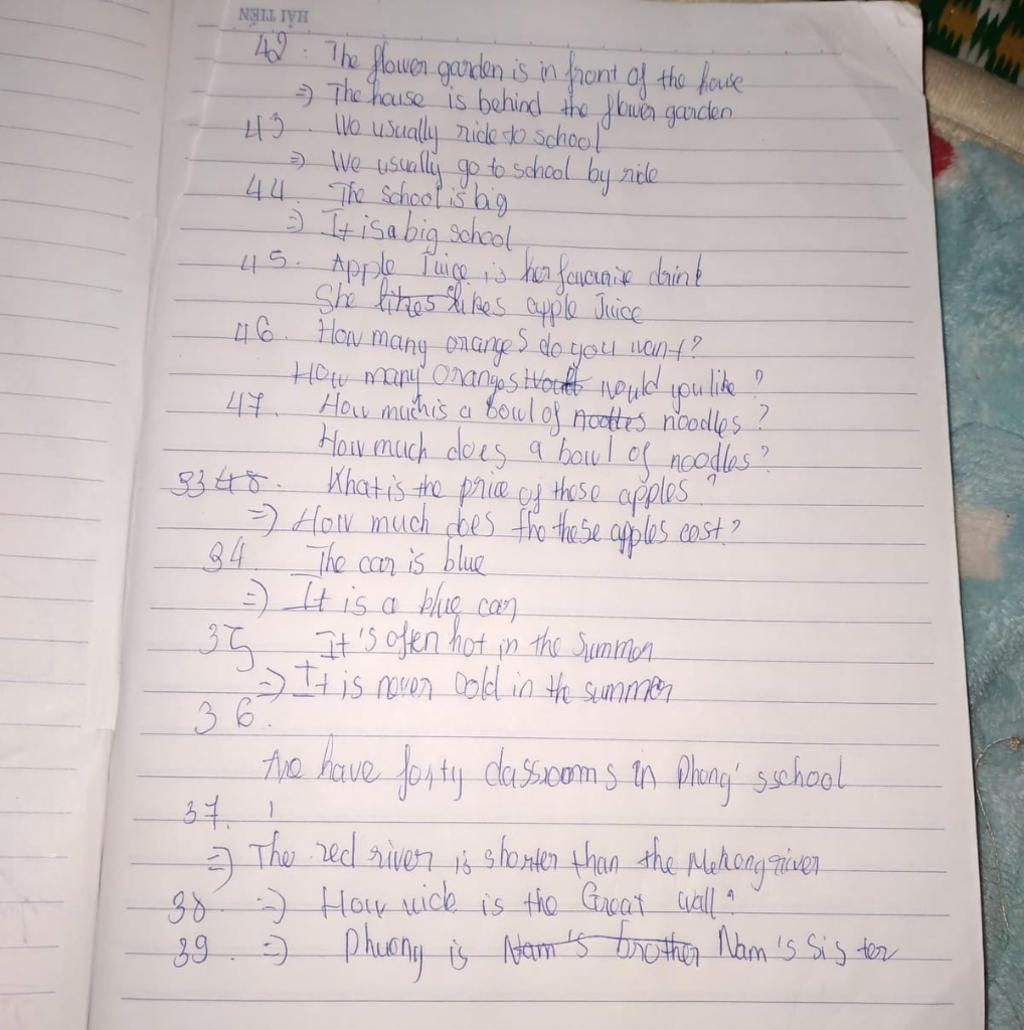 HẢI TIẾN
42. The flower garden is in front of the house
=) The house is behind the flower garden
43. We usually ride to school
=) We usually go to school by ride
44. The school is big
=) It is a big school
45. Apple Juice is her drink
She likes likes apple Juice
46. How many oranges do you want?
How many Oranges would you like?
47. How much is a bowl of noodles?
How much does a bowl of noodles?
33 48. What is the price of these apples?
=) How much does tho these apples cost?
34. The car is blue
=) It is a blue car
35 It's often hot in the Summer
=) It is never cold in the summer
36.
have forty classrooms in Phong's school
37.
=) The red river is shorter than the Mekong river
38 =) How wide is the Great wall?
39. =) Phuong is Nam's brother Nam's Sister